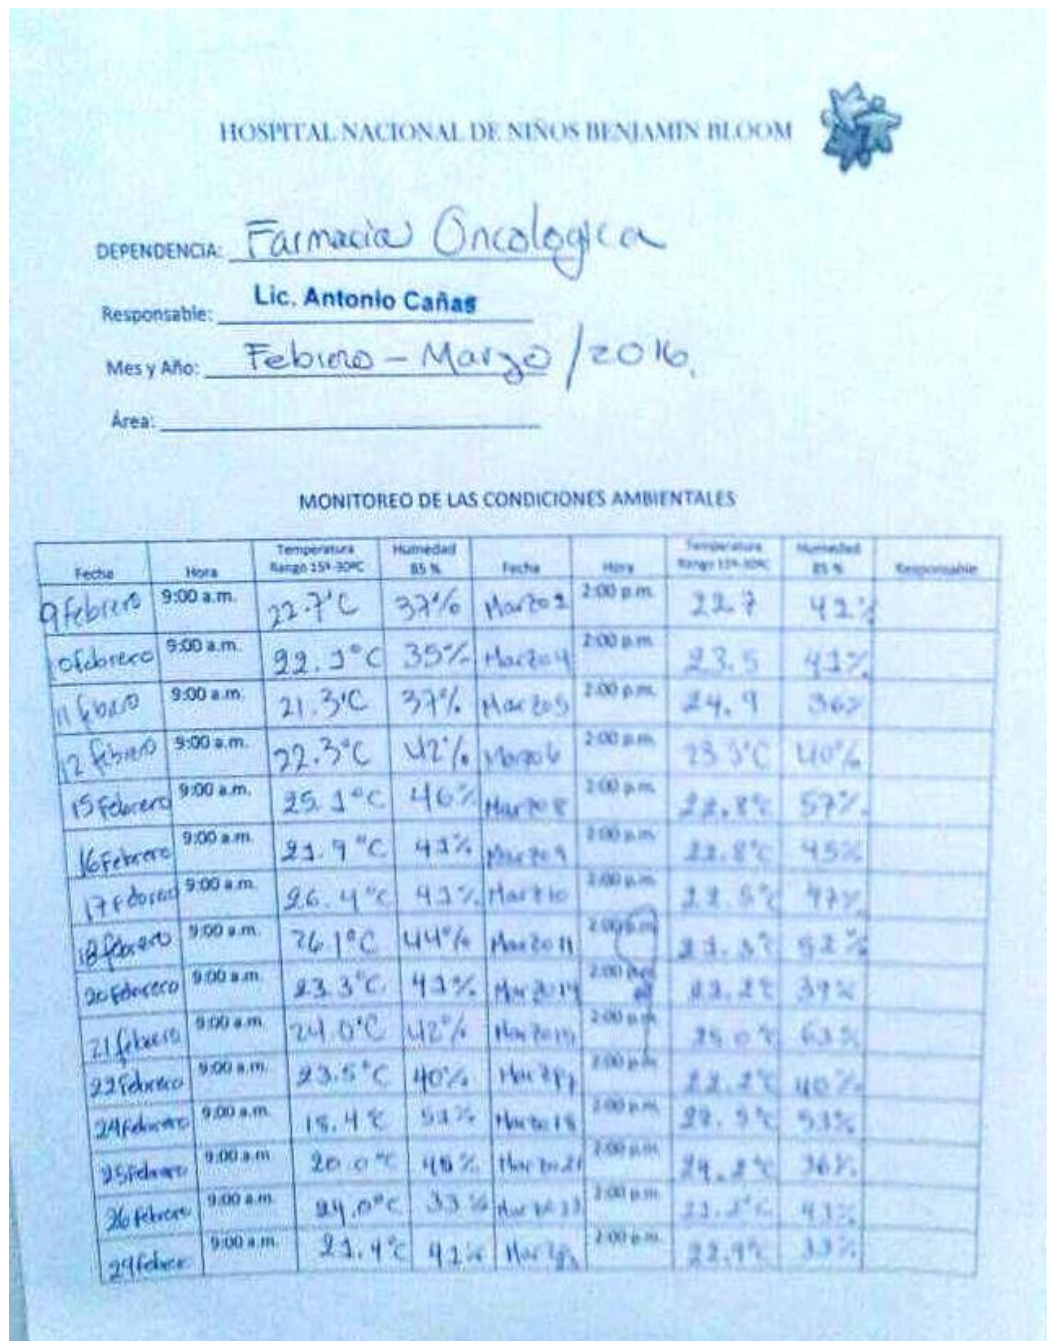 HOSPITAL NACIONAL DE NIÑOS BENJAMIN BLOOM
DEPENDENCIA: Farmacia Oncologica
Responsable: Lic. Antonio Cañas
Mes y Año: Febrero - Marzo / 2016.
Área:
MONITOREO DE LAS CONDICIONES AMBIENTALES
Fecha Hora Temperatura Rango 15º-30ºC Humedad 85 % Fecha Hora Temperatura Rango 15º-30ºC Humedad 85 % Responsable
9 febrero 9:00 a.m. 22.7°C 37% Marzo 2:00 p.m. 22.7 42%
10 febrero 9:00 a.m. 22.1°C 35% Marzo 4 2:00 p.m. 23.5 41%
11 febrero 9:00 a.m. 21.3°C 37% Marzo 5 2:00 p.m. 24.9 36%
12 febrero 9:00 a.m. 22.3°C 42% Marzo 6 2:00 p.m. 23.3°C 40%
15 Febrero 9:00 a.m. 25.1°C 46% Marzo 8 2:00 p.m. 22.8°C 57%
16 Febrero 9:00 a.m. 21.9°C 41% Marzo 9 2:00 p.m. 22.8°C 45%
17 Febrero 9:00 a.m. 26.4°C 41% Marzo 10 2:00 p.m. 22.5°C 47%
18 febrero 9:00 a.m. 26.1°C 44% Marzo 11 2:00 p.m. 21.3°C 52%
20 Febrero 9:00 a.m. 23.3°C 41% Marzo 14 2:00 p.m. 22.2°C 39%
21 febrero 9:00 a.m. 24.0°C 42% Marzo 15 2:00 p.m. 25.0°C 63%
22 Febrero 9:00 a.m. 23.5°C 40% Marzo 2:00 p.m. 22.2°C 40%
24 Febrero 9:00 a.m. 18.4°C 51% Marzo 18 2:00 p.m. 22.5°C 53%
25 Febrero 9:00 a.m. 20.0°C 48% Marzo 21 2:00 p.m. 24.2°C 36%
26 Febrero 9:00 a.m. 24.0°C 33% 2:00 p.m. 41%
9:00 a.m. 21.4°C 41% 2:00 p.m. 22.9°C 33%